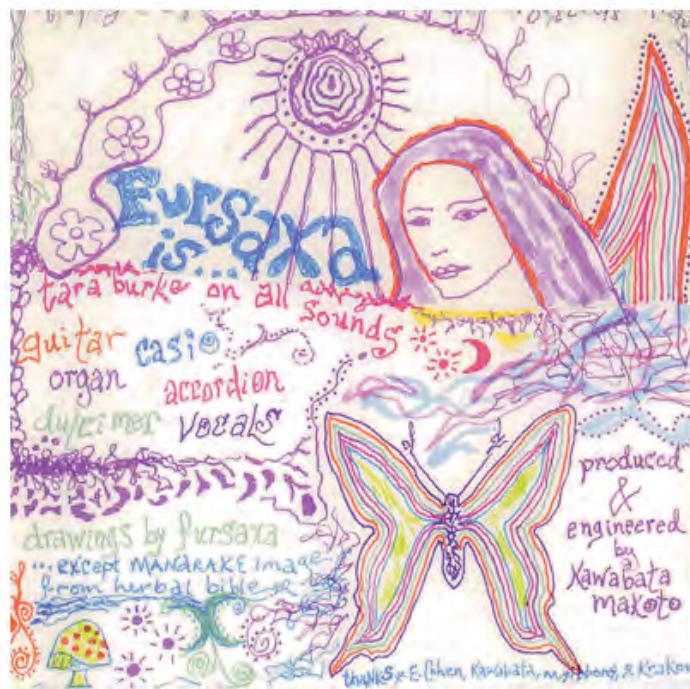 Fursaxa
is...
tara burke on all
sounds
guitar casio
organ accordion
dulcimer vocals
drawings by fursaxa
...except MANDRAKE image
from herbal bible
produced
&
engineered
by
Kawabata
makoto
thanks E. Cohen, Kawabata, & Krakow